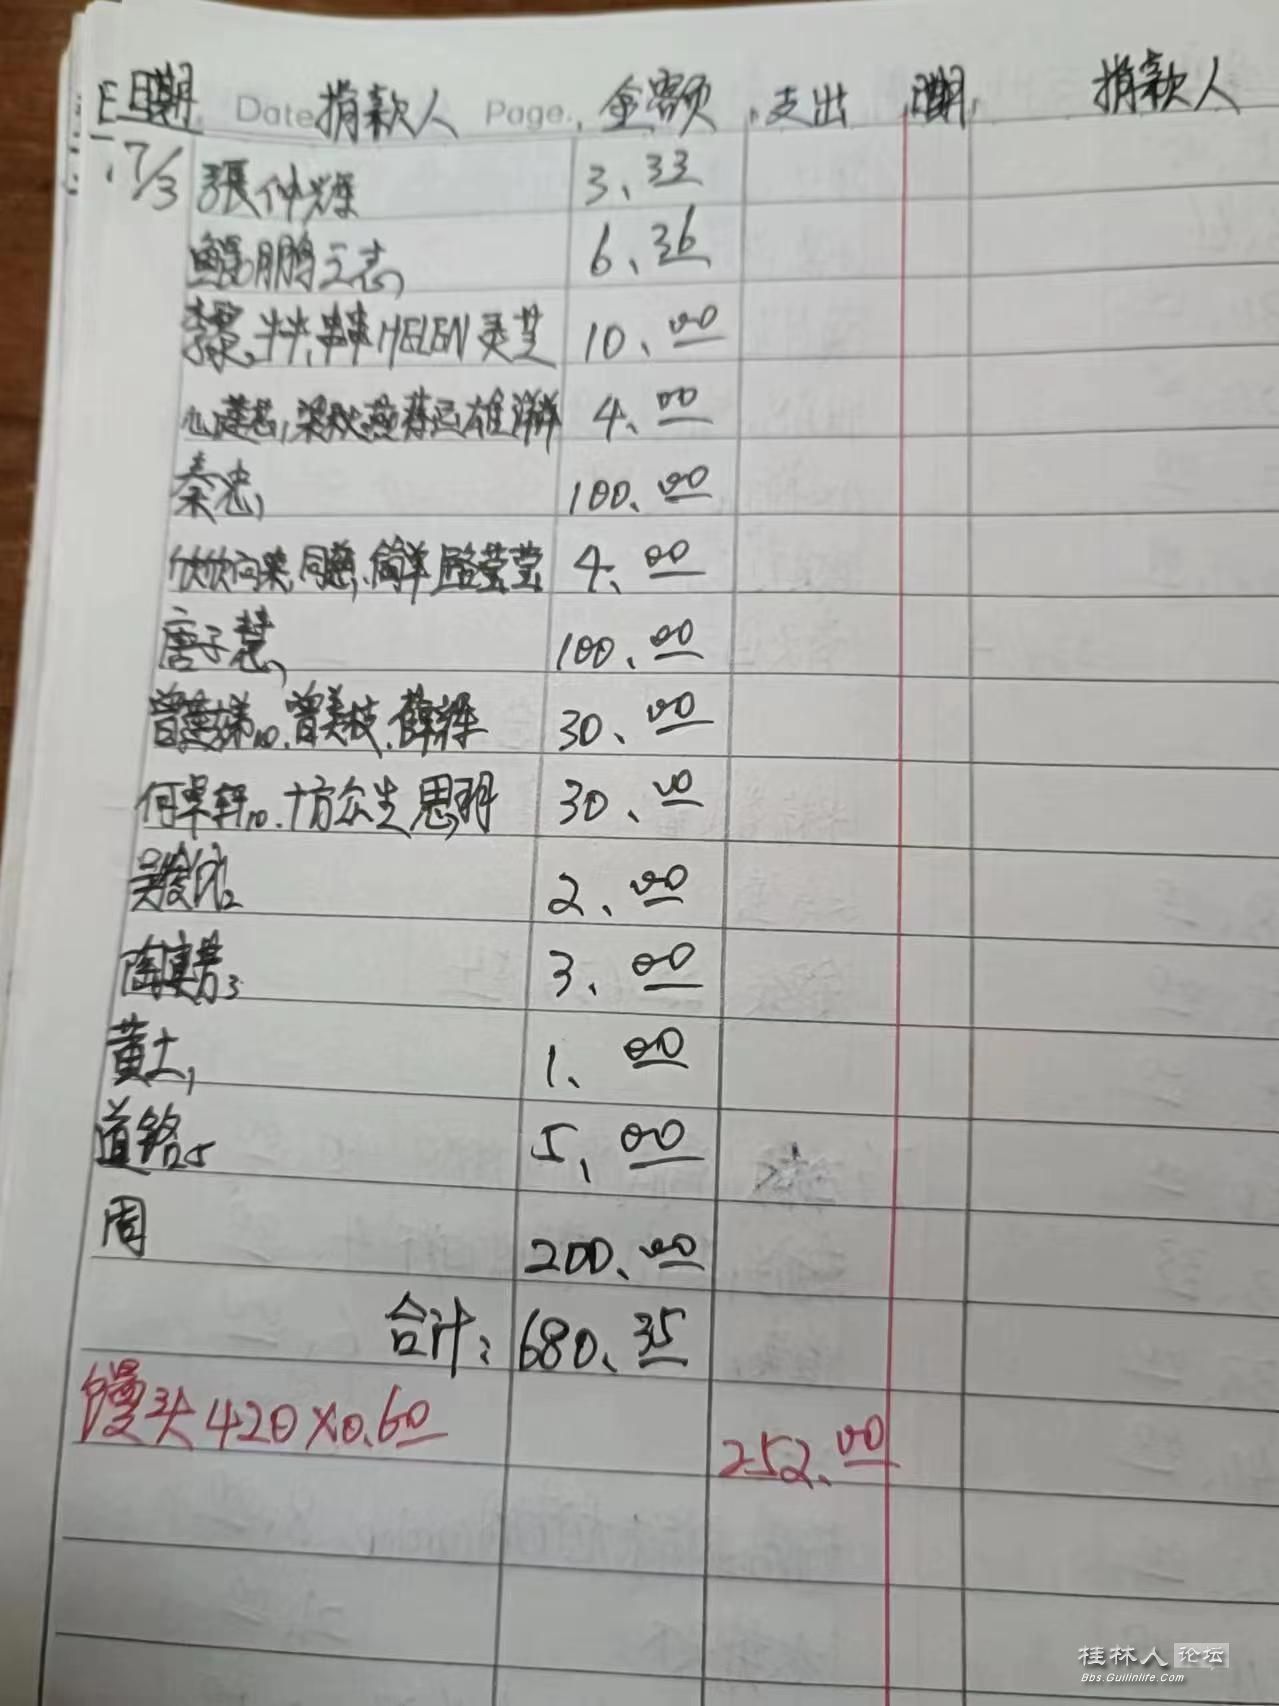 日期 Date 捐款人 Page. 金额 支出 日期 捐款人
7/3 張仲煇 3.33
鲲鹏之志, 6.36
HELEN 灵芝 10.00
4.00
秦忠, 100.00
欣欣向荣, 同慈, 简单, 路莹莹 4.00
唐子慧, 100.00
曾美娣10, 曾美枝, 薛辉 30.00
何卓轩10. 十方众生, 思玥 30.00
2.00
陶真芳3 3.00
黄土, 1.00
道路5 5.00
周 200.00
合计: 680.35
馒头 420×0.60 252.00
桂林人论坛
Bbs.Guilinlife.Com